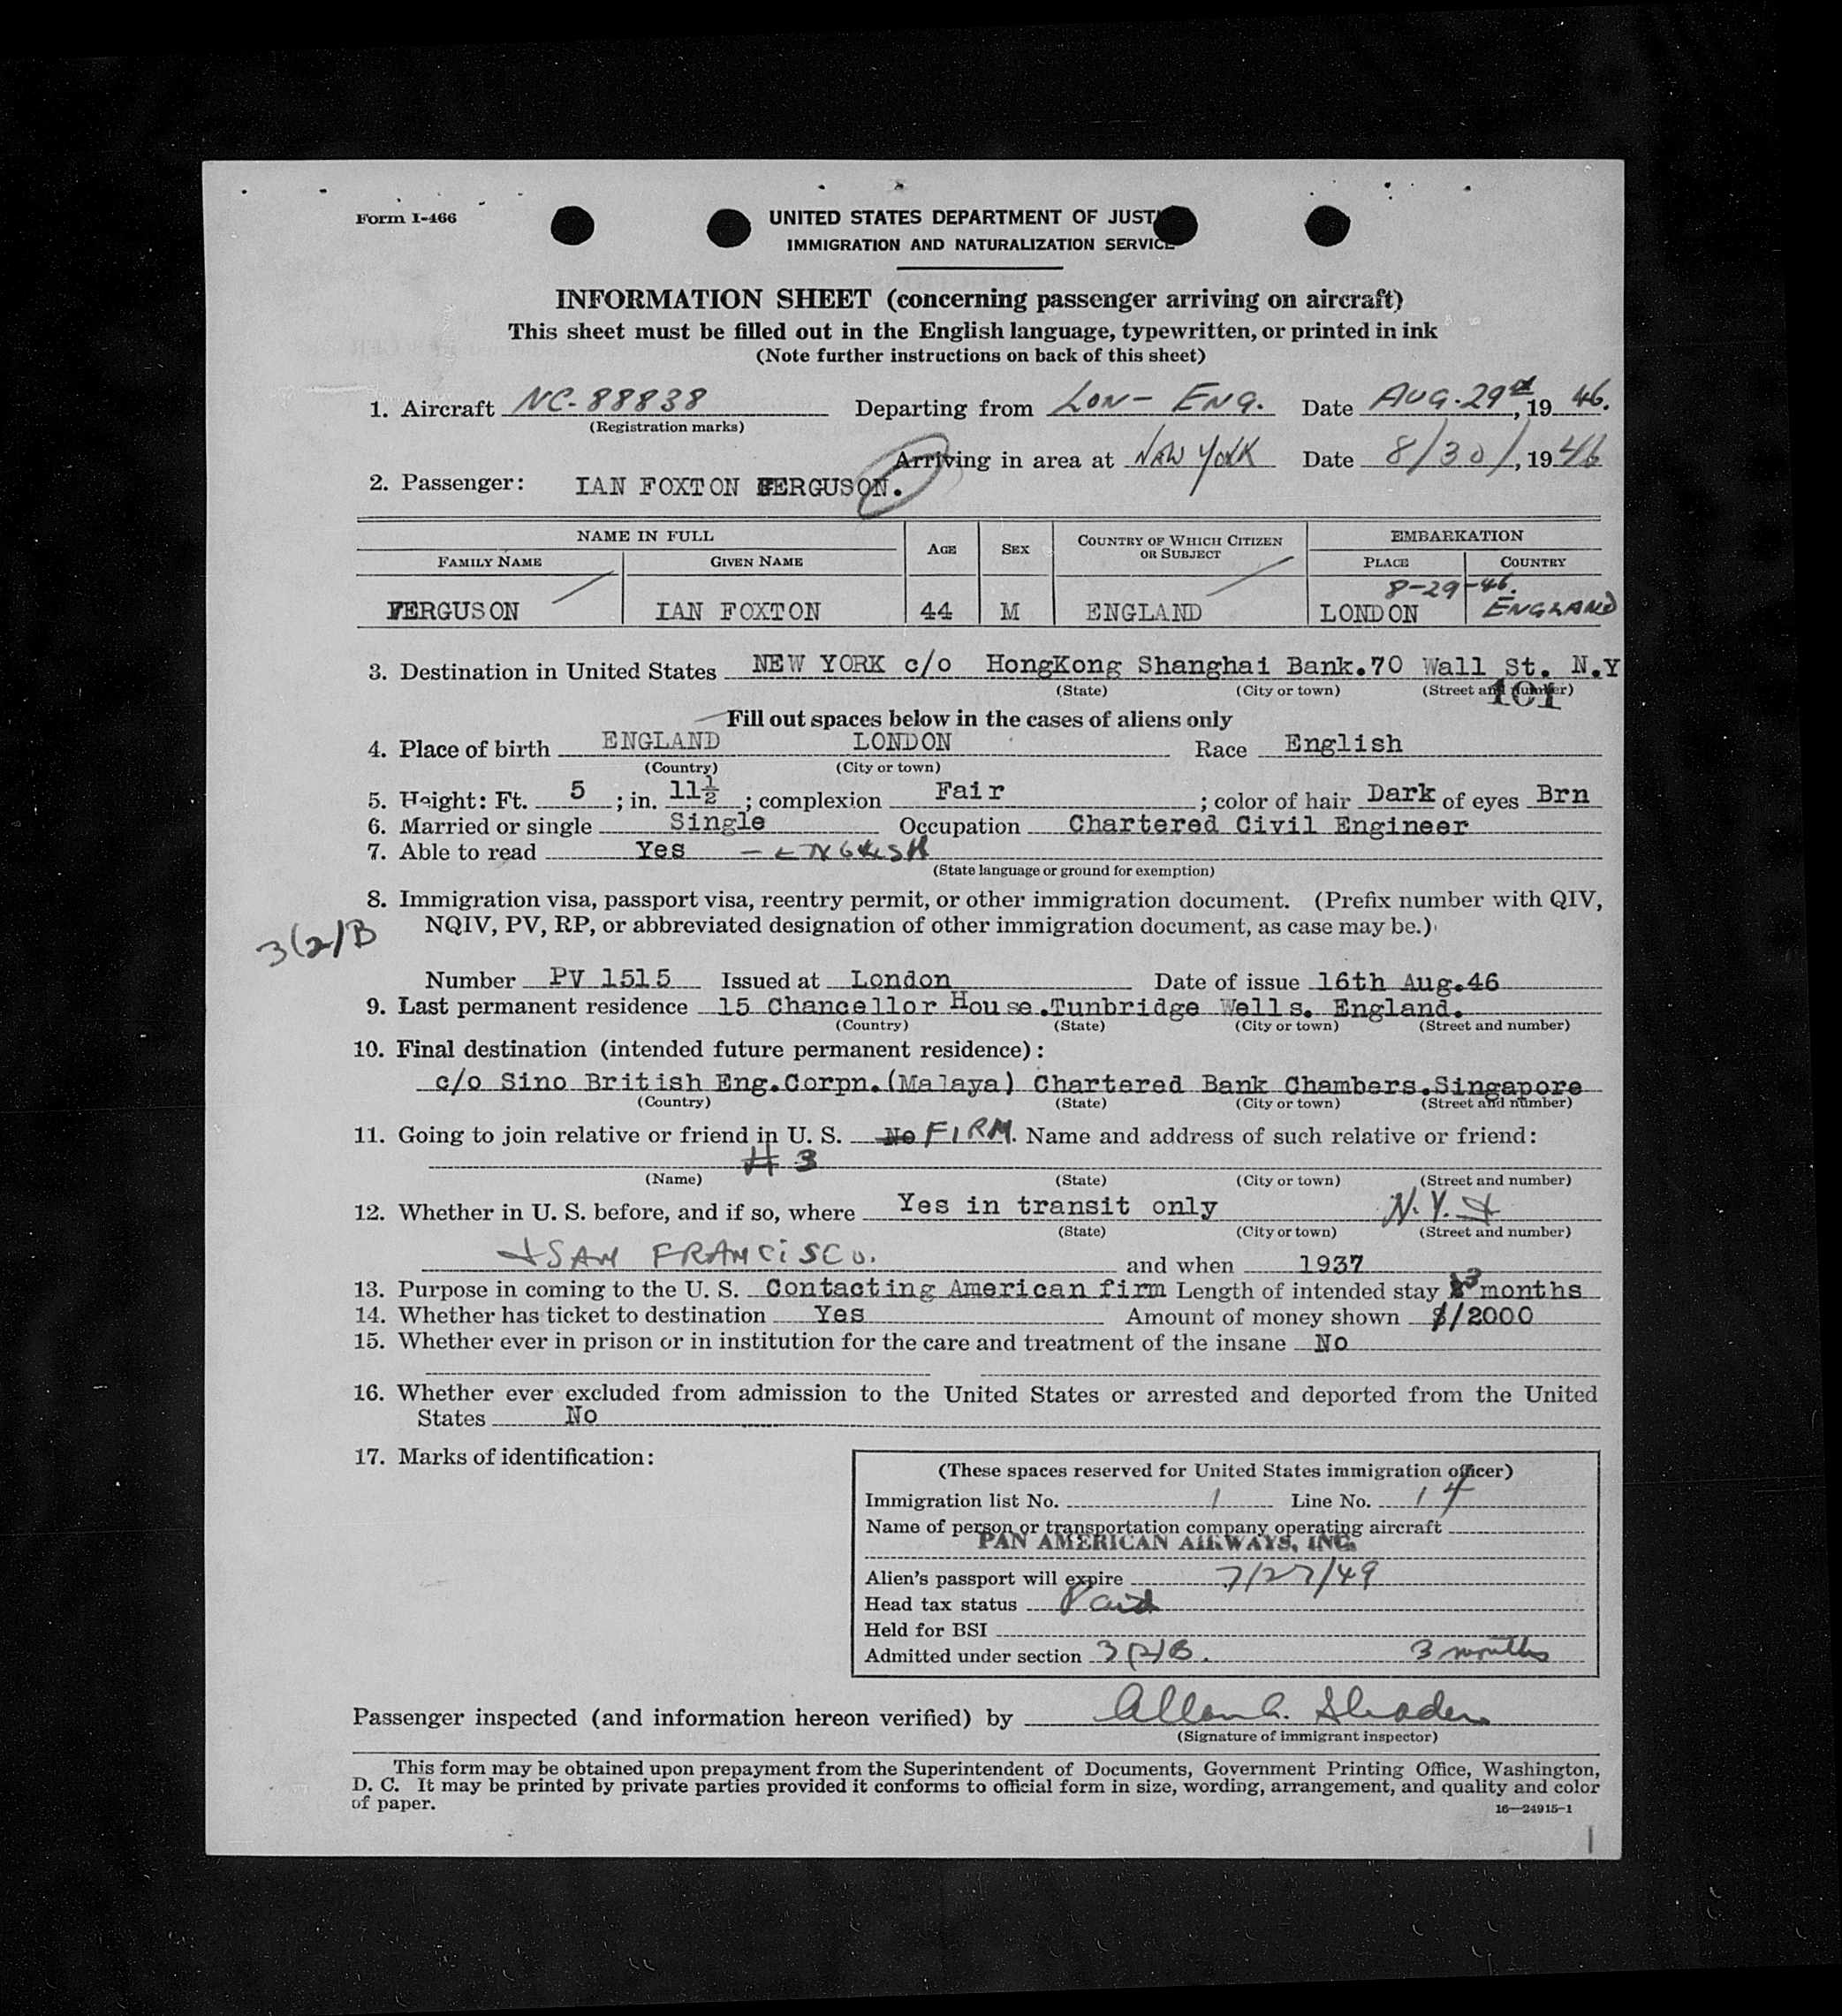 Form I-466
UNITED STATES DEPARTMENT OF JUST
IMMIGRATION AND NATURALIZATION SERVICE
INFORMATION SHEET (concerning passenger arriving on aircraft)
This sheet must be filled out in the English language, typewritten, or printed in ink
(Note further instructions on back of this sheet)
1. Aircraft NC-88838 Departing from LON- ENG. Date AUG. 29, 19 46.
(Registration marks)
Arriving in area at NEW YORK Date 8/30/, 19 46
2. Passenger: IAN FOXTON FERGUSON.
NAME IN FULL AGE SEX COUNTRY OF WHICH CITIZEN OR SUBJECT EMBARKATION
FAMILY NAME GIVEN NAME PLACE COUNTRY
8-29-46.
FERGUSON IAN FOXTON 44 M ENGLAND LONDON ENGLAND
3. Destination in United States NEW YORK c/o HongKong Shanghai Bank.70 Wall St. N.Y
(State) (City or town) (Street and number)
101
Fill out spaces below in the cases of aliens only
4. Place of birth ENGLAND LONDON Race English
(Country) (City or town)
5. Height: Ft. 5 ; in. 11½ ; complexion Fair ; color of hair Dark of eyes Brn
6. Married or single Single Occupation Chartered Civil Engineer
7. Able to read Yes - ENGLISH
(State language or ground for exemption)
8. Immigration visa, passport visa, reentry permit, or other immigration document. (Prefix number with QIV,
3(2)B NQIV, PV, RP, or abbreviated designation of other immigration document, as case may be.)
Number PV 1515 Issued at London Date of issue 16th Aug.46
9. Last permanent residence 15 Chancellor House.Tunbridge Wells. England.
(Country) (State) (City or town) (Street and number)
10. Final destination (intended future permanent residence):
c/o Sino British Eng.Corpn.(Malaya) Chartered Bank Chambers.Singapore
(Country) (State) (City or town) (Street and number)
11. Going to join relative or friend in U. S. No FIRM. Name and address of such relative or friend:
# 3
(Name) (State) (City or town) (Street and number)
12. Whether in U. S. before, and if so, where Yes in transit only N.Y. +
(State) (City or town) (Street and number)
+ SAN FRANCISCO. and when 1937
13. Purpose in coming to the U. S. Contacting American firm Length of intended stay 3 months
14. Whether has ticket to destination Yes Amount of money shown $/2000
15. Whether ever in prison or in institution for the care and treatment of the insane No
16. Whether ever excluded from admission to the United States or arrested and deported from the United
States No
17. Marks of identification:
(These spaces reserved for United States immigration officer)
Immigration list No. 1 Line No. 14
Name of person or transportation company operating aircraft
PAN AMERICAN AIRWAYS, INC.
Alien's passport will expire 7/27/49
Head tax status Paid
Held for BSI
Admitted under section 3(2)B. 3 months
Passenger inspected (and information hereon verified) by Allan G.
(Signature of immigrant inspector)
This form may be obtained upon prepayment from the Superintendent of Documents, Government Printing Office, Washington,
D. C. It may be printed by private parties provided it conforms to official form in size, wording, arrangement, and quality and color
of paper.
16—24915-1